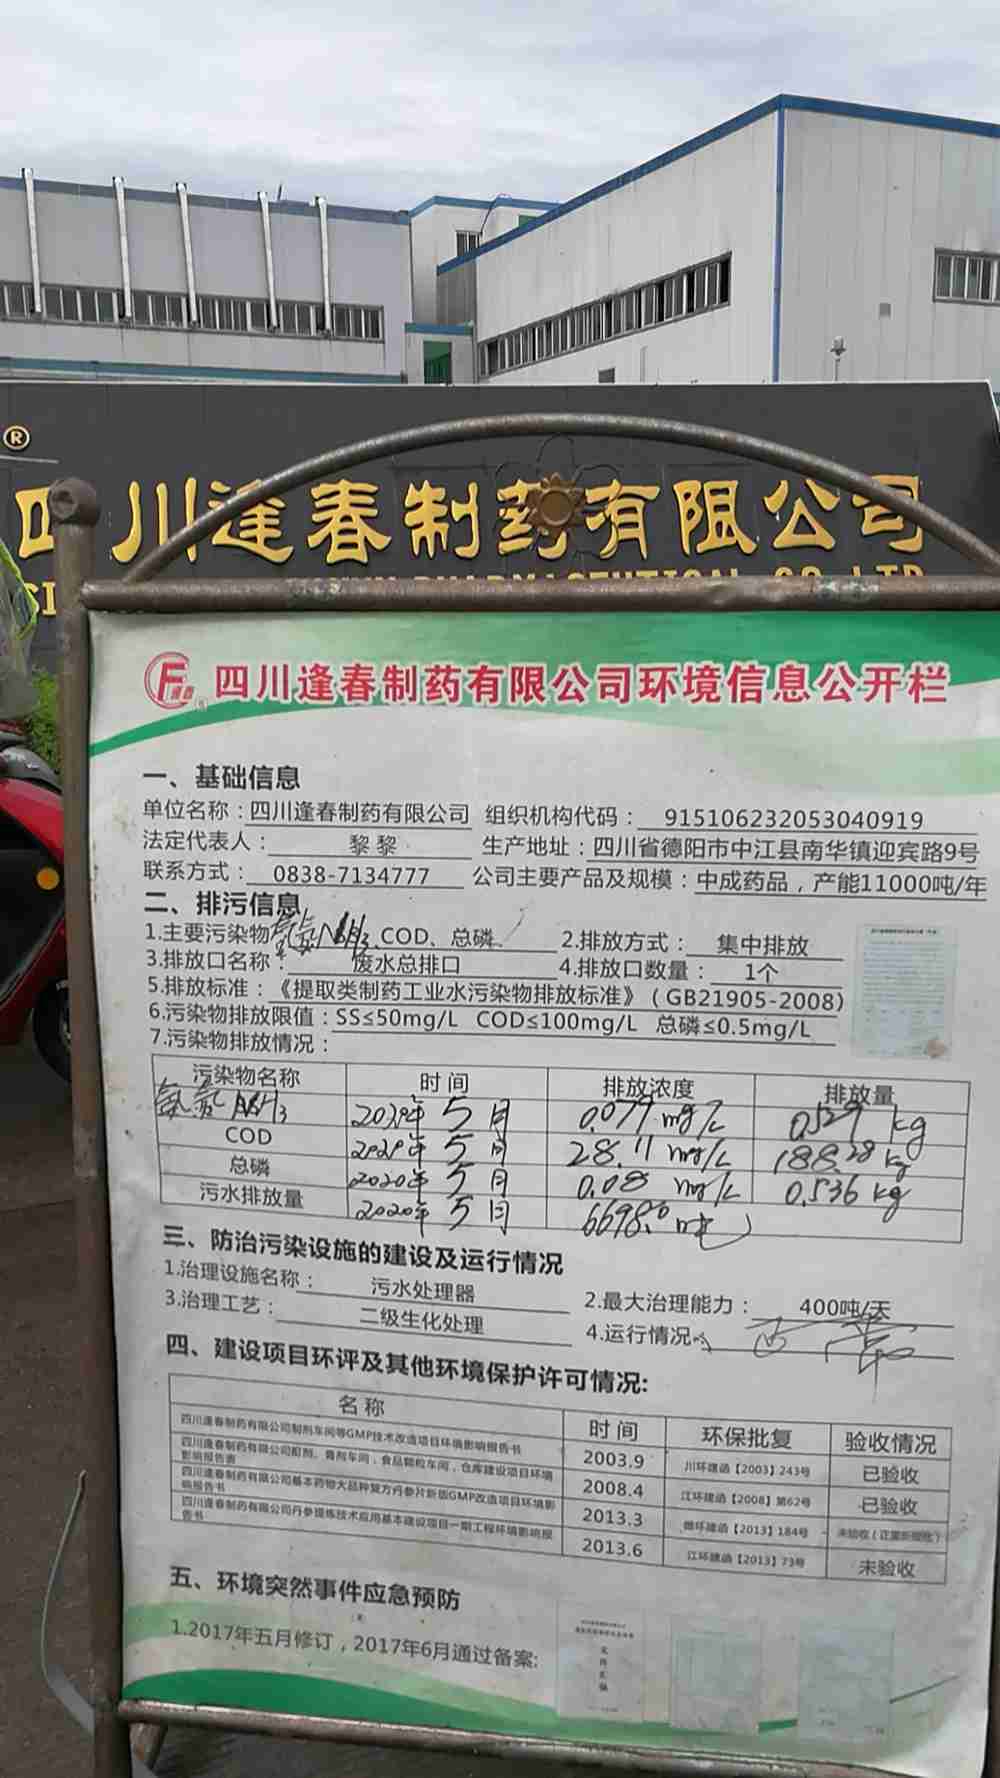 ®
四川逢春制药有限公司
四川逢春制药有限公司环境信息公开栏
一、基础信息
单位名称：四川逢春制药有限公司 组织机构代码： 915106232053040919
法定代表人： 黎黎 生产地址：四川省德阳市中江县南华镇迎宾路9号
联系方式： 0838-7134777 公司主要产品及规模：中成药品，产能11000吨/年
二、排污信息
1.主要污染物 氨氮NH3、COD、总磷 2.排放方式： 集中排放
3.排放口名称： 废水总排口 4.排放口数量： 1个
5.排放标准：《提取类制药工业水污染物排放标准》（GB21905-2008）
6.污染物排放限值：SS≤50mg/L COD≤100mg/L 总磷≤0.5mg/L
7.污染物排放情况：
污染物名称 时间 排放浓度 排放量
氨氮NH3 2020年5月 0.079mg/L 0.529kg
COD 2020年5月 28.11mg/L 188.28kg
总磷 2020年5月 0.08mg/L 0.536kg
污水排放量 2020年5月 6698.0吨
三、防治污染设施的建设及运行情况
1.治理设施名称： 污水处理器 2.最大治理能力： 400吨/天
3.治理工艺： 二级生化处理 4.运行情况： 正常
四、建设项目环评及其他环境保护许可情况:
名称 时间 环保批复 验收情况
四川逢春制药有限公司制剂车间等GMP技术改造项目环境影响报告书 2003.9 川环建函【2003】243号 已验收
四川逢春制药有限公司配剂、膏剂车间，食品颗粒车间，仓库建设项目环境影响报告表 2008.4 江环建函【2008】第62号 已验收
四川逢春制药有限公司基本药物大品种复方丹参片新版GMP改造项目环境影响报告书 2013.3 德环建函【2013】184号 未验收
四川逢春制药有限公司丹参提炼技术应用基本建设项目一期工程环境影响报告书 2013.6 江环建函【2013】73号 未验收
五、环境突然事件应急预防
1.2017年五月修订，2017年6月通过备案: